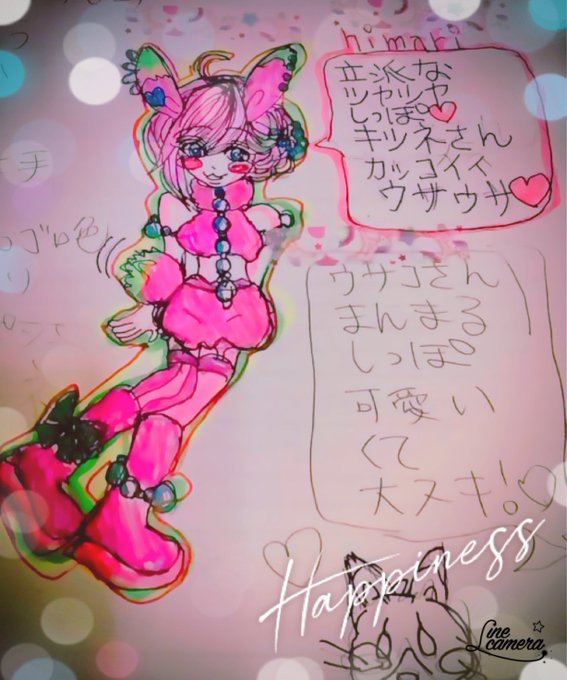 himari
立派な
ツヤツヤ
しっぽ
キツネさん
カッコイイ
ウサウサ
ウサコさん
まんまる
しっぽ
可愛い
くて
大スキ!
Happiness
Line
camera